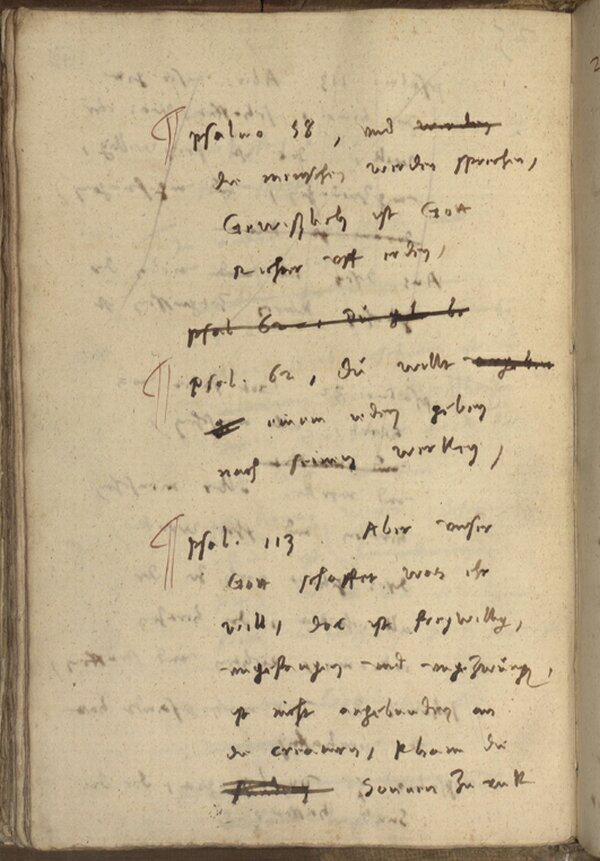 ¶ psalmo 58, und werden
die menschen werden sprechen,
Gewißlich ist Gott
Richter auff erden,
psal 62 Du
¶ psal. 62, du willt
einem ieden geben
nach seinen werken,
¶ psal. 113 Aber unser
Gott schaffet was ehr
will, das ist freywillig,
ungefangen und ungezwungen,
ist nicht angebunden an
die creaturn, kham die
Sonnen zuruk